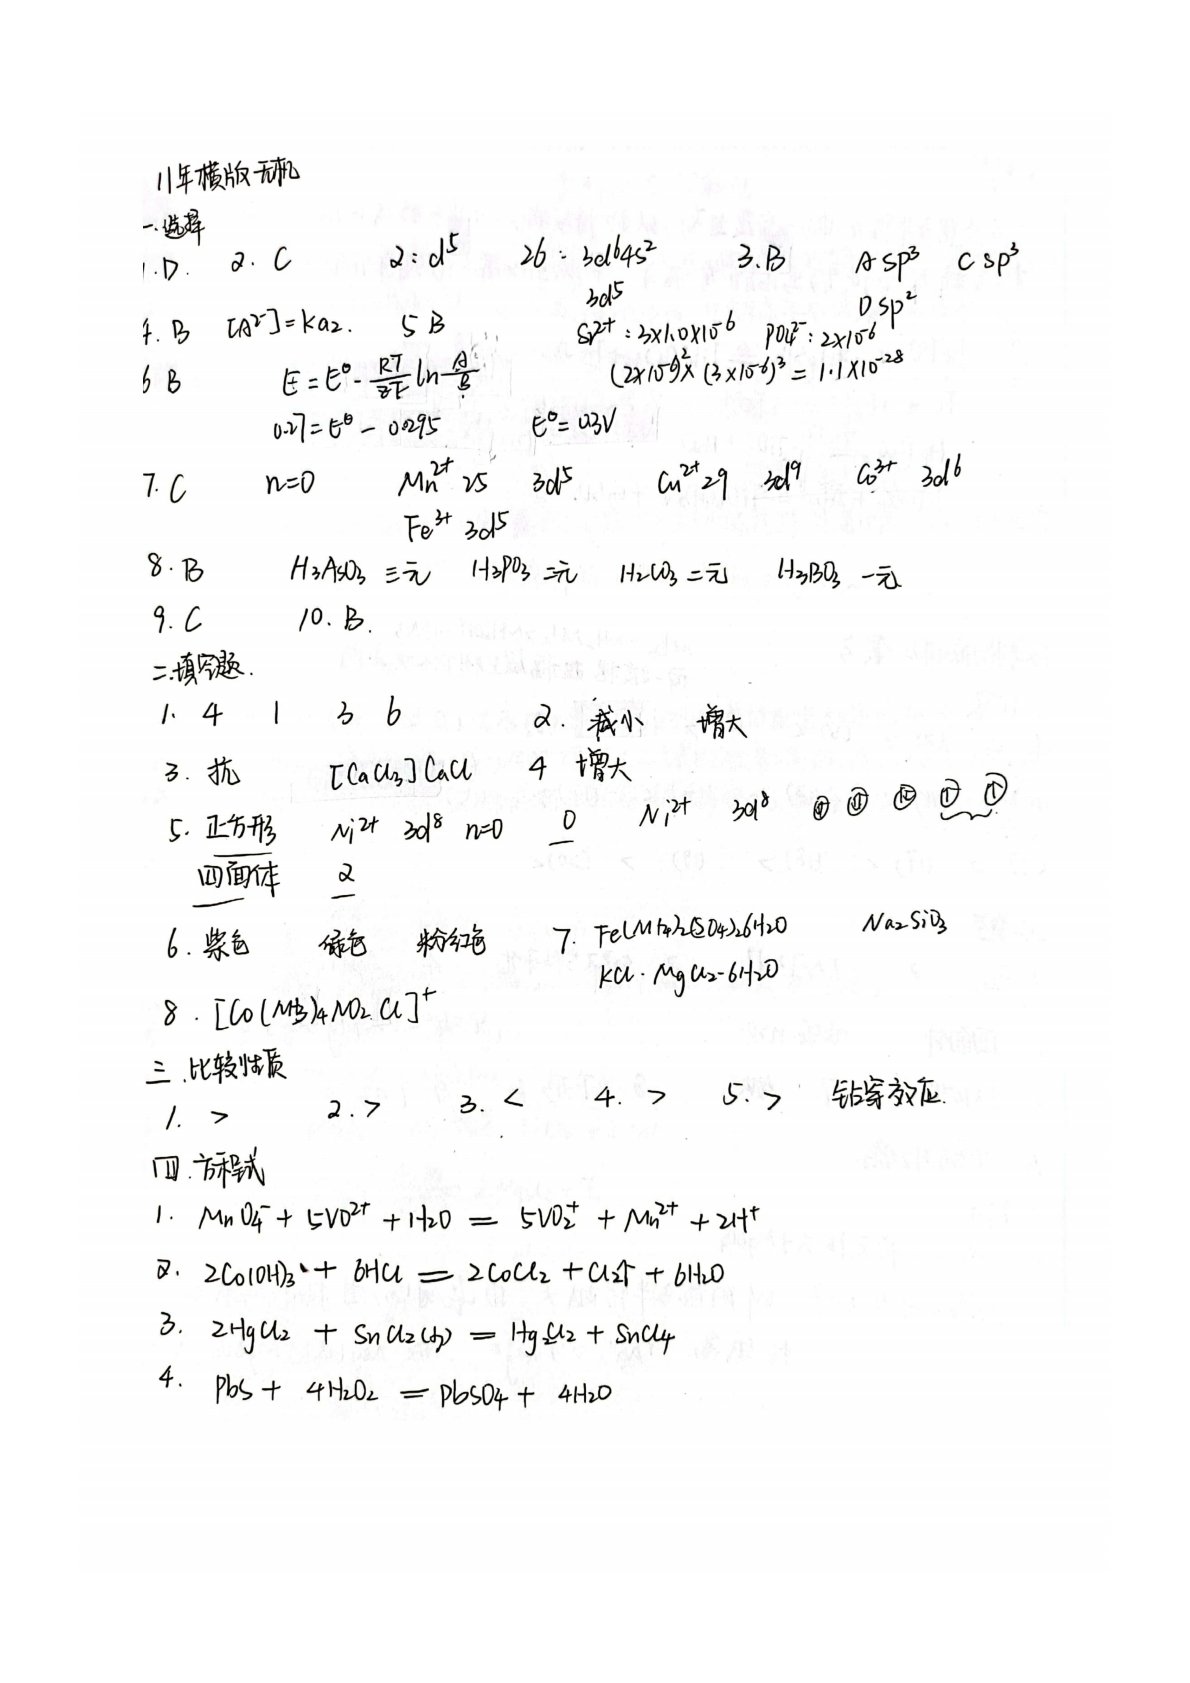 11年横版无机
一.选择
1.D. 2. C 2:d⁵ 26:3d⁶4s² 3.B A sp³ C sp³
3d⁵ D sp²
4. B [A²⁻]=Ka₂. 5 B Sr²⁺:3×1.0×10⁻⁶ PO₄³⁻:2×10⁻⁶
6 B E=E^θ-RT/zF ln A/B (2×10⁻⁶)²×(3×10⁻⁶)³=1.1×10⁻²⁸
0.27=E^θ-0.0295 E^θ=0.3V
7. C n=0 Mn²⁺ 25 3d⁵ Cu²⁺ 29 3d⁹ Co³⁺ 3d⁶
Fe³⁺ 3d⁵
8. B H₃AsO₃ 三元 H₃PO₃ 二元 H₂CO₃ 二元 H₃BO₃ 一元
9. C 10. B.
二.填空题.
1. 4 1 3 6 2. 减小 增大
3. 抗 [CaCl₃]CaCl 4 增大
5. 正方形 Ni²⁺ 3d⁸ n=0 0 Ni²⁺ 3d⁸
四面体 2
6. 紫色 绿色 粉红色 7. Fe(NH₄)₂(SO₄)₂6H₂O Na₂SiO₃
KCl·MgCl₂·6H₂O
8. [Co(NH₃)₄NO₂Cl]⁺
三.比较性质
1. > 2. > 3. < 4. > 5. > 钻穿效应.
四.方程式
1. MnO₄⁻+5VO²⁺+H₂O=5VO₂⁺+Mn²⁺+2H⁺
2. 2Co(OH)₃+6HCl=2CoCl₂+Cl₂↑+6H₂O
3. 2HgCl₂+SnCl₂(少)=Hg₂Cl₂+SnCl₄
4. PbS+4H₂O₂=PbSO₄+4H₂O